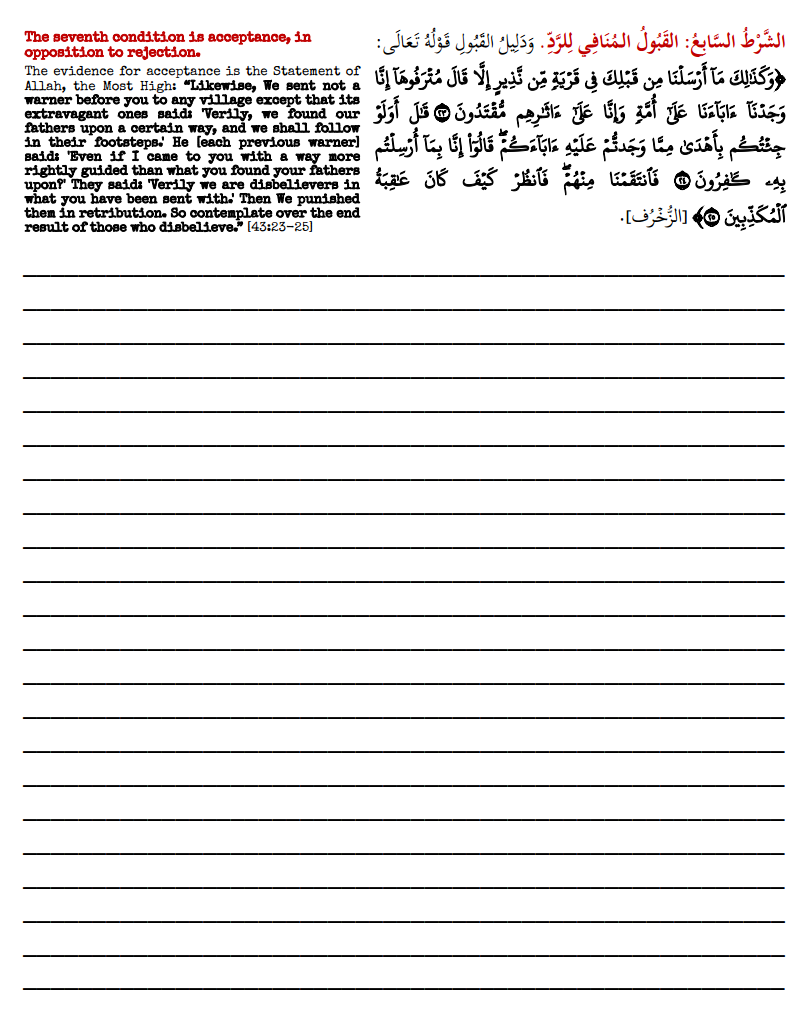 The seventh condition is acceptance, in
opposition to rejection.
The evidence for acceptance is the Statement of
Allah, the Most High: “Likewise, We sent not a
warner before you to any village except that its
extravagant ones said: 'Verily, we found our
fathers upon a certain way, and we shall follow
in their footsteps.' He [each previous warner]
said: 'Even if I came to you with a way more
rightly guided than what you found your fathers
upon?' They said: 'Verily we are disbelievers in
what you have been sent with.' Then We punished
them in retribution. So contemplate over the end
result of those who disbelieve.” [43:23-25]
الشَّرْطُ السَّابِعُ: القَبُولُ المُنَافِي لِلرَّدِّ. وَدَلِيلُ القَبُولِ قَوْلُهُ تَعَالَى:
﴿وَكَذَٰلِكَ مَآ أَرْسَلْنَا مِن قَبْلِكَ فِى قَرْيَةٍ مِّن نَّذِيرٍ إِلَّا قَالَ مُتْرَفُوهَآ إِنَّا
وَجَدْنَآ ءَابَآءَنَا عَلَىٰٓ أُمَّةٍ وَإِنَّا عَلَىٰٓ ءَاثَٰرِهِم مُّقْتَدُونَ ٢٣ قَٰلَ أَوَلَوْ
جِئْتُكُم بِأَهْدَىٰ مِمَّا وَجَدتُّمْ عَلَيْهِ ءَابَآءَكُمْ ۖ قَالُوٓا۟ إِنَّا بِمَآ أُرْسِلْتُم
بِهِۦ كَٰفِرُونَ ٢٤ فَٱنتَقَمْنَا مِنْهُمْ ۖ فَٱنظُرْ كَيْفَ كَانَ عَٰقِبَةُ
ٱلْمُكَذِّبِينَ ٢٥﴾ [الزُّخْرُف].